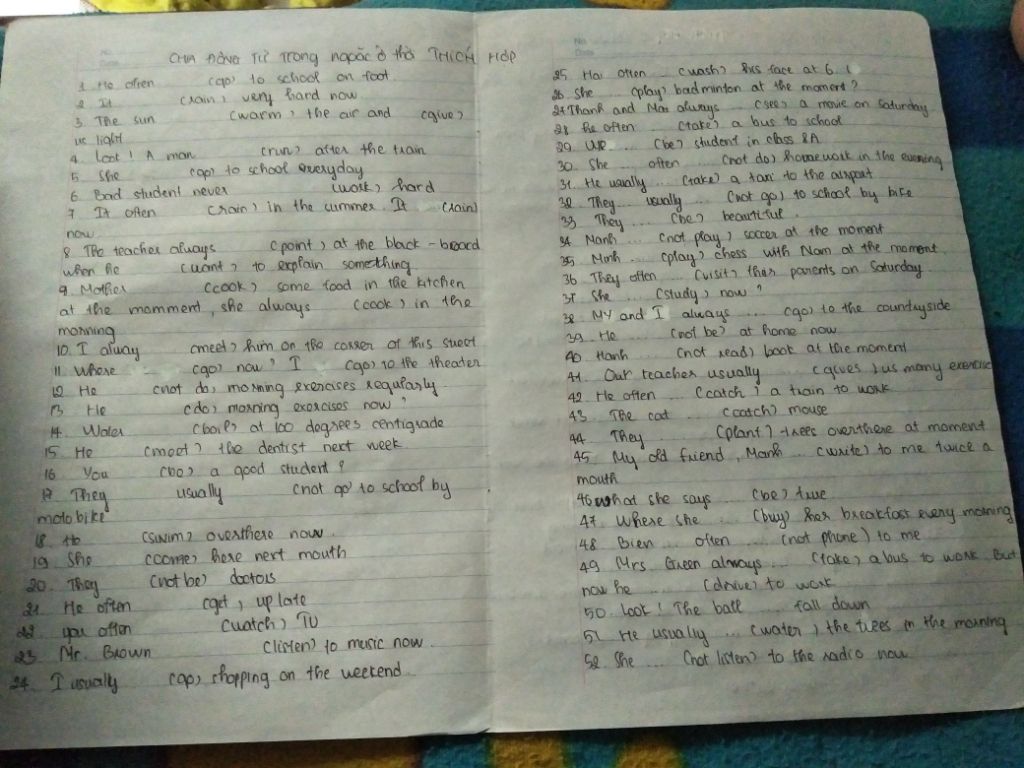 CHIA ĐỘNG TỪ TRONG ngoặc ở thì THÍCH HỢP
1. He often (go) to school on foot.
2. It (rain) very hard now
3. The sun (warm) the air and (give)
us light
4. Look! A man (run) after the train
5. She (go) to school everyday
6. Bad student never (work) hard
7. It often (rain) in the summer. It (rain)
now.
8. The teacher always (point) at the black-board
when he (want) to explain something
9. Mother (cook) some food in the kitchen
at the momment, she always (cook) in the
morning
10. I alway (meet) him on the corner of this street
11. Where (go) now? I (go) to the theater
12. He (not do) morning exercises regularly
13. He (do) morning exercises now?
14. Water (boil) at 100 degrees centigrade
15. He (meet) the dentist next week
16. You (be) a good student?
17. They usually (not go) to school by
motobike
18. He (swim) overthere now.
19. She (come) here next mouth
20. They (not be) doctors
21. He often (get) up late
22. you often (watch) TV
23. Mr. Brown (listen) to music now.
24. I usually (go) shopping on the weekend.
No.
Date
25. Hai often (wash) his face at 6.
26. She (play) badminton at the moment?
27. Thanh and Mai always .... (see) a movie on Saturday
28. He often .... (take) a bus to school
29. We .... (be) student in class 8A
30. She .... often .... (not do) homework in the evening
31. He usually .... (take) a taxi to the airport
32. They .... usually .... (not go) to school by bike
33. They .... (be) beautiful.
34. Nanh .... (not play) soccer at the moment
35. Minh .... (play) chess with Nam at the moment.
36. They often .... (visit) their parents on Saturday.
37. She .... (study) now?
38. MY and I always .... (go) to the countryside
39. He .... (not be) at home now
40. Hanh .... (not read) book at the moment
41. Our teacher usually .... (gives) us many exercise
42. He often .... (catch) a train to work
43. The cat .... (catch) mouse
44. They .... (plant) trees overthere at moment
45. My old friend, Manh .... (write) to me twice a
mouth
46. what she says .... (be) true
47. Where she .... (buy) her breakfast every morning
48. Bien .... often .... (not phone) to me
49. Mrs Green always .... (take) a bus to work. But
now he .... (drive) to work
50. Look! The ball .... fall down
51. He usually .... (water) the trees in the morning
52. She .... (not listen) to the radio now